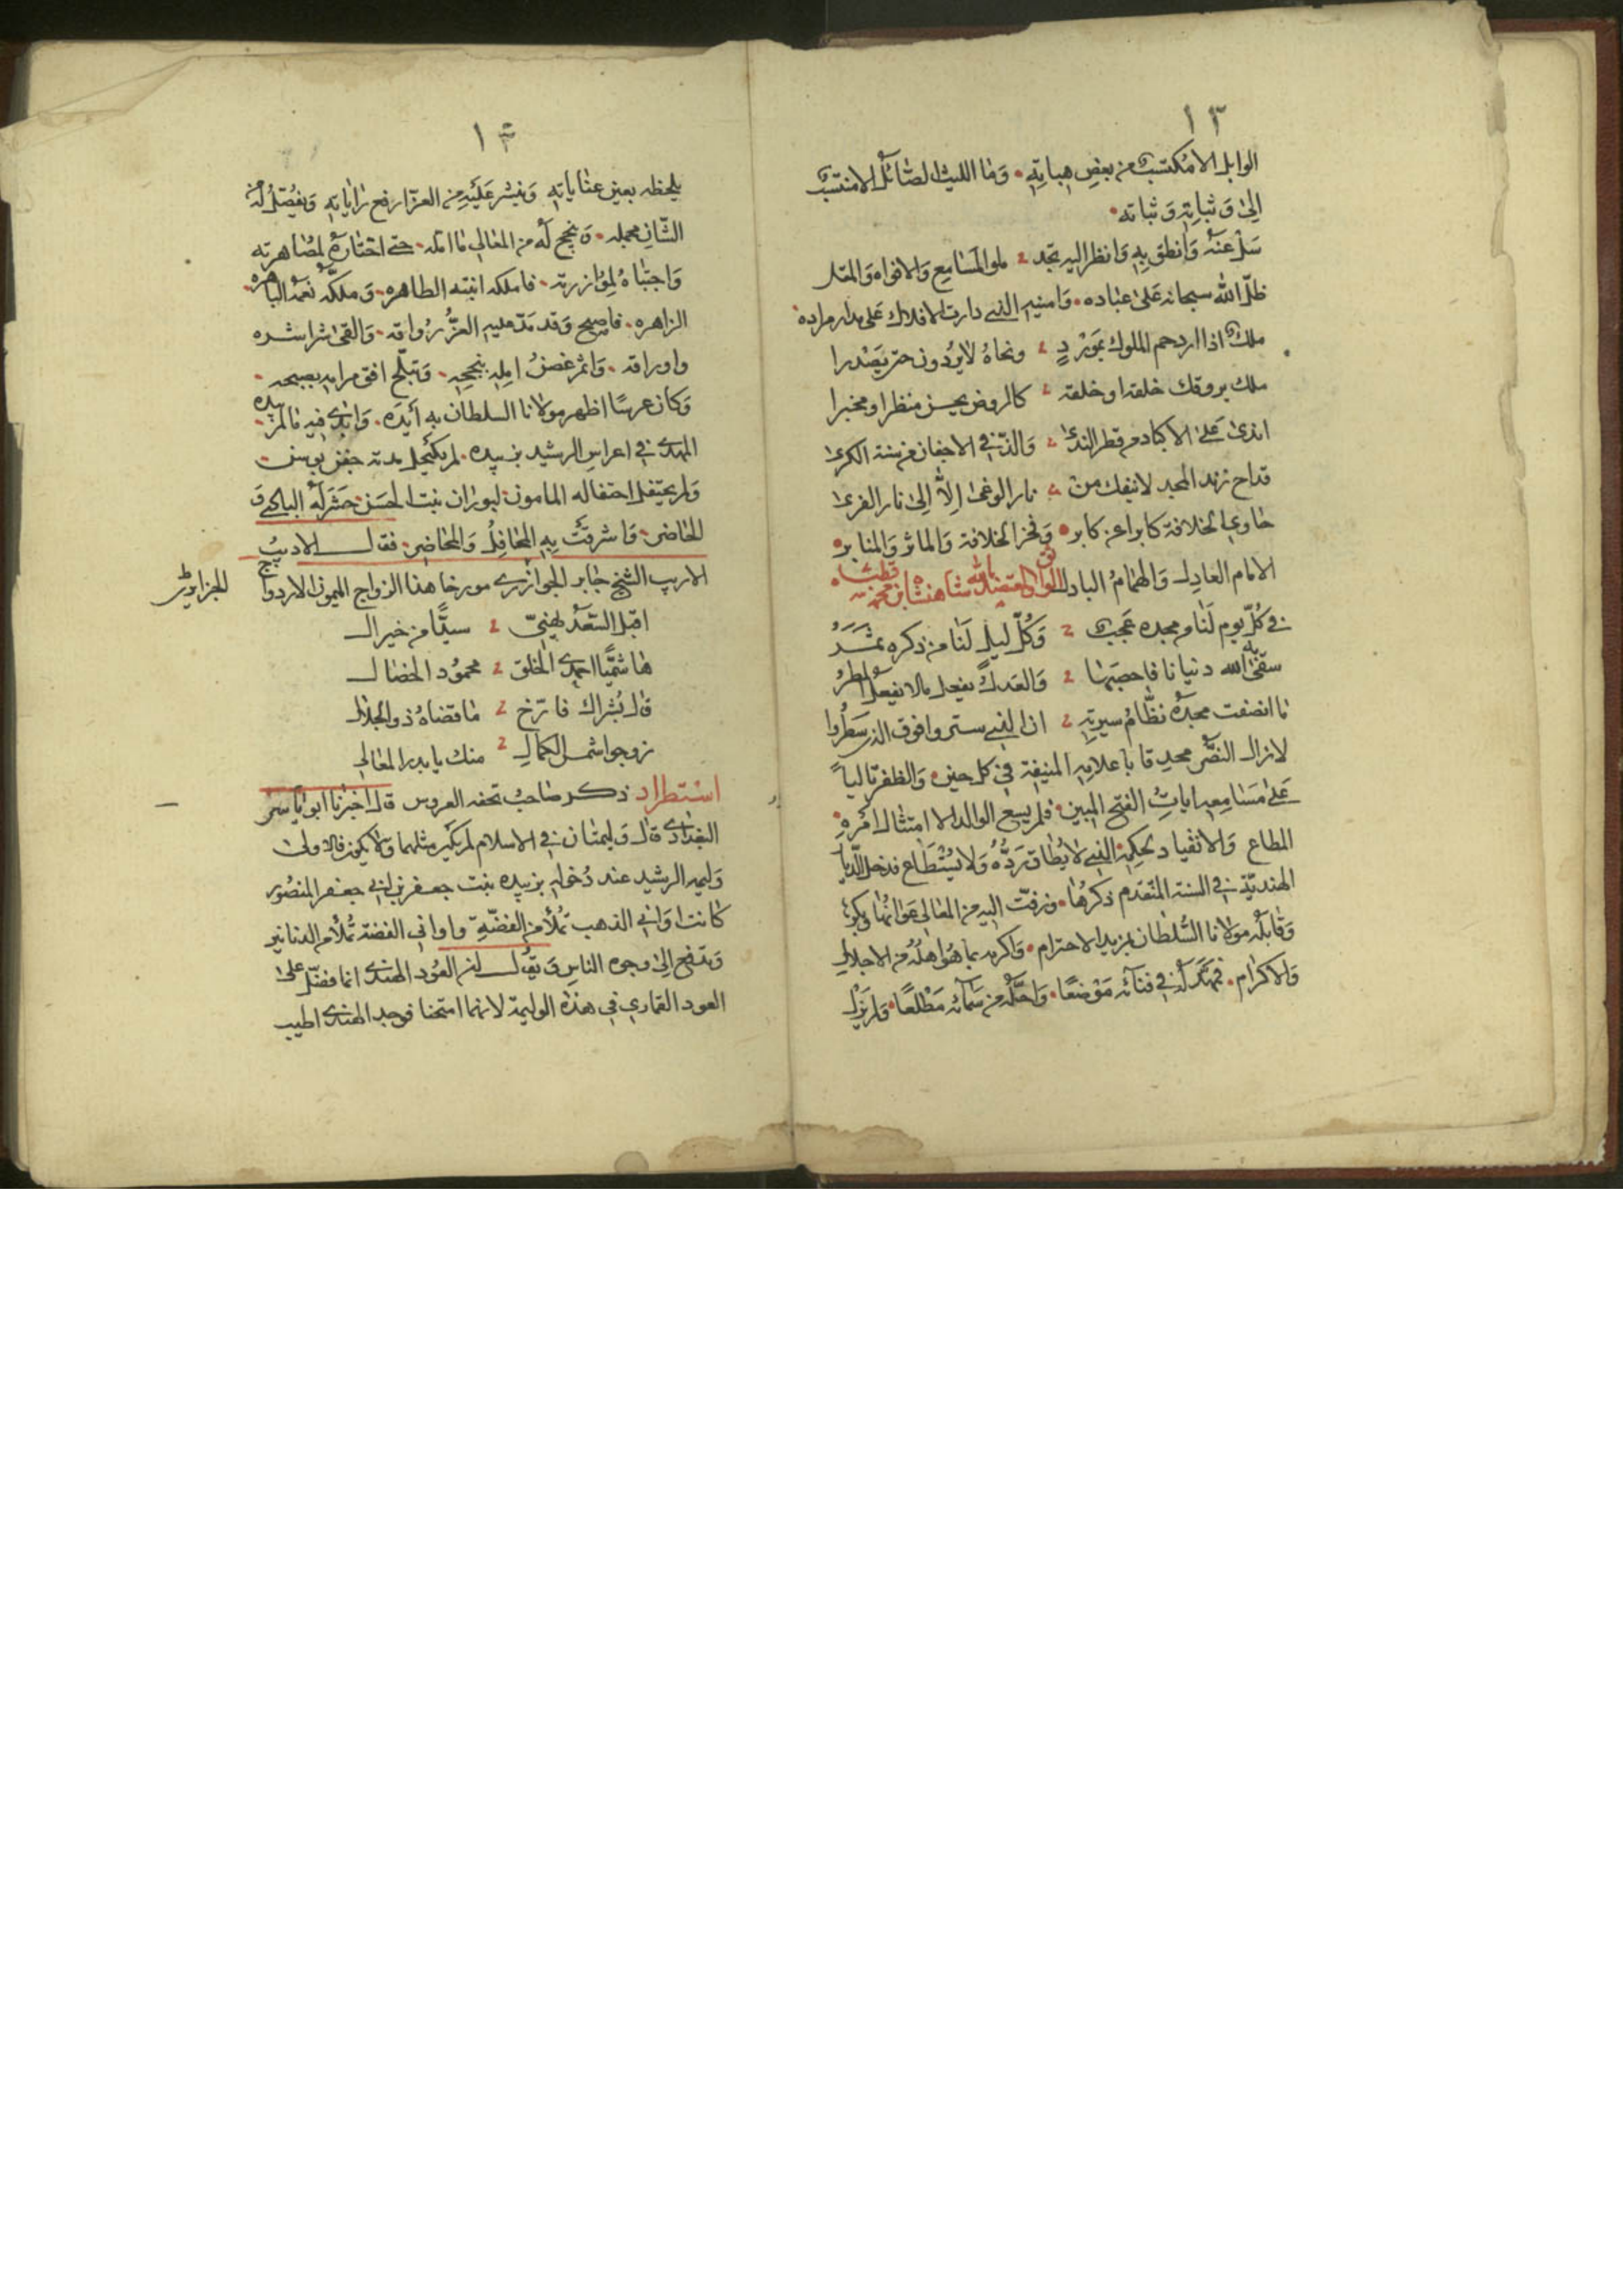 ١٣
الوابل الا مكتسب من بعض هباته • وما الليث الصائل الا منتسب
الى وثباته وثباته •
سل عنه وانطق به وانظر اليه تجد ملو المسامع والافواه والمقل
ظل الله سبحانه على عباده • وامنيه الذي دارت الافلاك على مدار مراده
ملك اذا ازدحم الملوك بمورد ونحاه لا يردون حتى يصدرا
ملك يروقك خلقه او خلقه كالروض يحسن منظرا ومخبرا
اندى على الاكباد من قطر الندى والذ في الاجفان من سنة الكرى
قداح زند المجد لا ينفك من نار الوغى الا الى نار القرى
حاوي الخلافة كابرا عن كابر • وفخر الخلافة والماثر والمنابر •
الامام العادل والهمام الباذل شاهنشاه ابن محمد قطبشاه •
في كل يوم لنا من مجده عجب وكل ليل لنا من ذكره سمر
سقى به الله دنيانا فاخصبها والعدل يفعل ما لا يفعل المطر
ما انصفت مجده نظام سيرته ان الذي ستروا فوق الذي سطروا
لا زال النصر محدقا باعلامه المنيفة في كل حين • والظفر تاليا
على مسامعه ايات الفتح المبين • فلم يسع الوالد الا امتثال امره
المطاع والانقياد لحكمه الذي لا يطاق رده ولا يستطاع فدخل الديار
الهندية في السنة المتقدم ذكرها • وزفت اليه من المعالي عوانها وبكرها
وقابله مولانا السلطان بمزيد الاحترام • واكرمه بما هو اهله من الاجلال
والاكرام • فمهد له في فنائه موضعا • واحله من سمائه مطلعا • ولم يزل
١٤
يلحظه بعين عناياته وينشر عليه من العز ارفع راياته ويفصل له من
الشان مجمله • وينجح له من المعالي ما امله • حتى اختاره لمصاهرته
واجتباه لموازرته • فاملكه ابنته الطاهره • وملكه نعمه الباهره •
الزاهره • فاصبح وقد مد عليه العز رواقه • والقى شراشره
واوراقه • واثمر غصن امله بنجحه • وتبلج افق مرامه بصبحه •
وكان عرسا اظهر مولانا السلطان به ايده • وابدى فيه ما لم يبده
المهدي في اعراس الرشيد بزبيده • لم يكتحل بمثله جفن بوسن •
ولم يحتفل احتفاله المامون لبوران بنت الحسن • حشر له البادي و
الحاضر • واشرقت به المحافل والمحاضر • فقال الاديب
الاريب الشيخ جابر الجوازري مورخا هذا الزواج الميمون الازدواج
الجزايري
اقبل السعد يهني سيدا من خير ال
هاشميا احمدي الخلق محمود الخصال
قال بشراك فارخ ما قضاه ذو الجلال
زوجوا شمس الكمال منك يا بدر المعالي
استطراد ذكر صاحب تحفه العروس قال اخبرنا ابو ياسر
البغدادي قال وليمتان في الاسلام لم يكن مثلهما ولا يكون فالاولى
وليمه الرشيد عند دخوله بزبيده بنت جعفر بن ابي جعفر المنصور
كانت اواني الذهب تملأ من الفضة واواني الفضة تملأ من الدنانير
وتدفع الى وجوه الناس ويقول ان العود الهندي انما فضل على
العود القماري في هذه الوليمة لانهما امتحنا فوجد الهندي اطيب